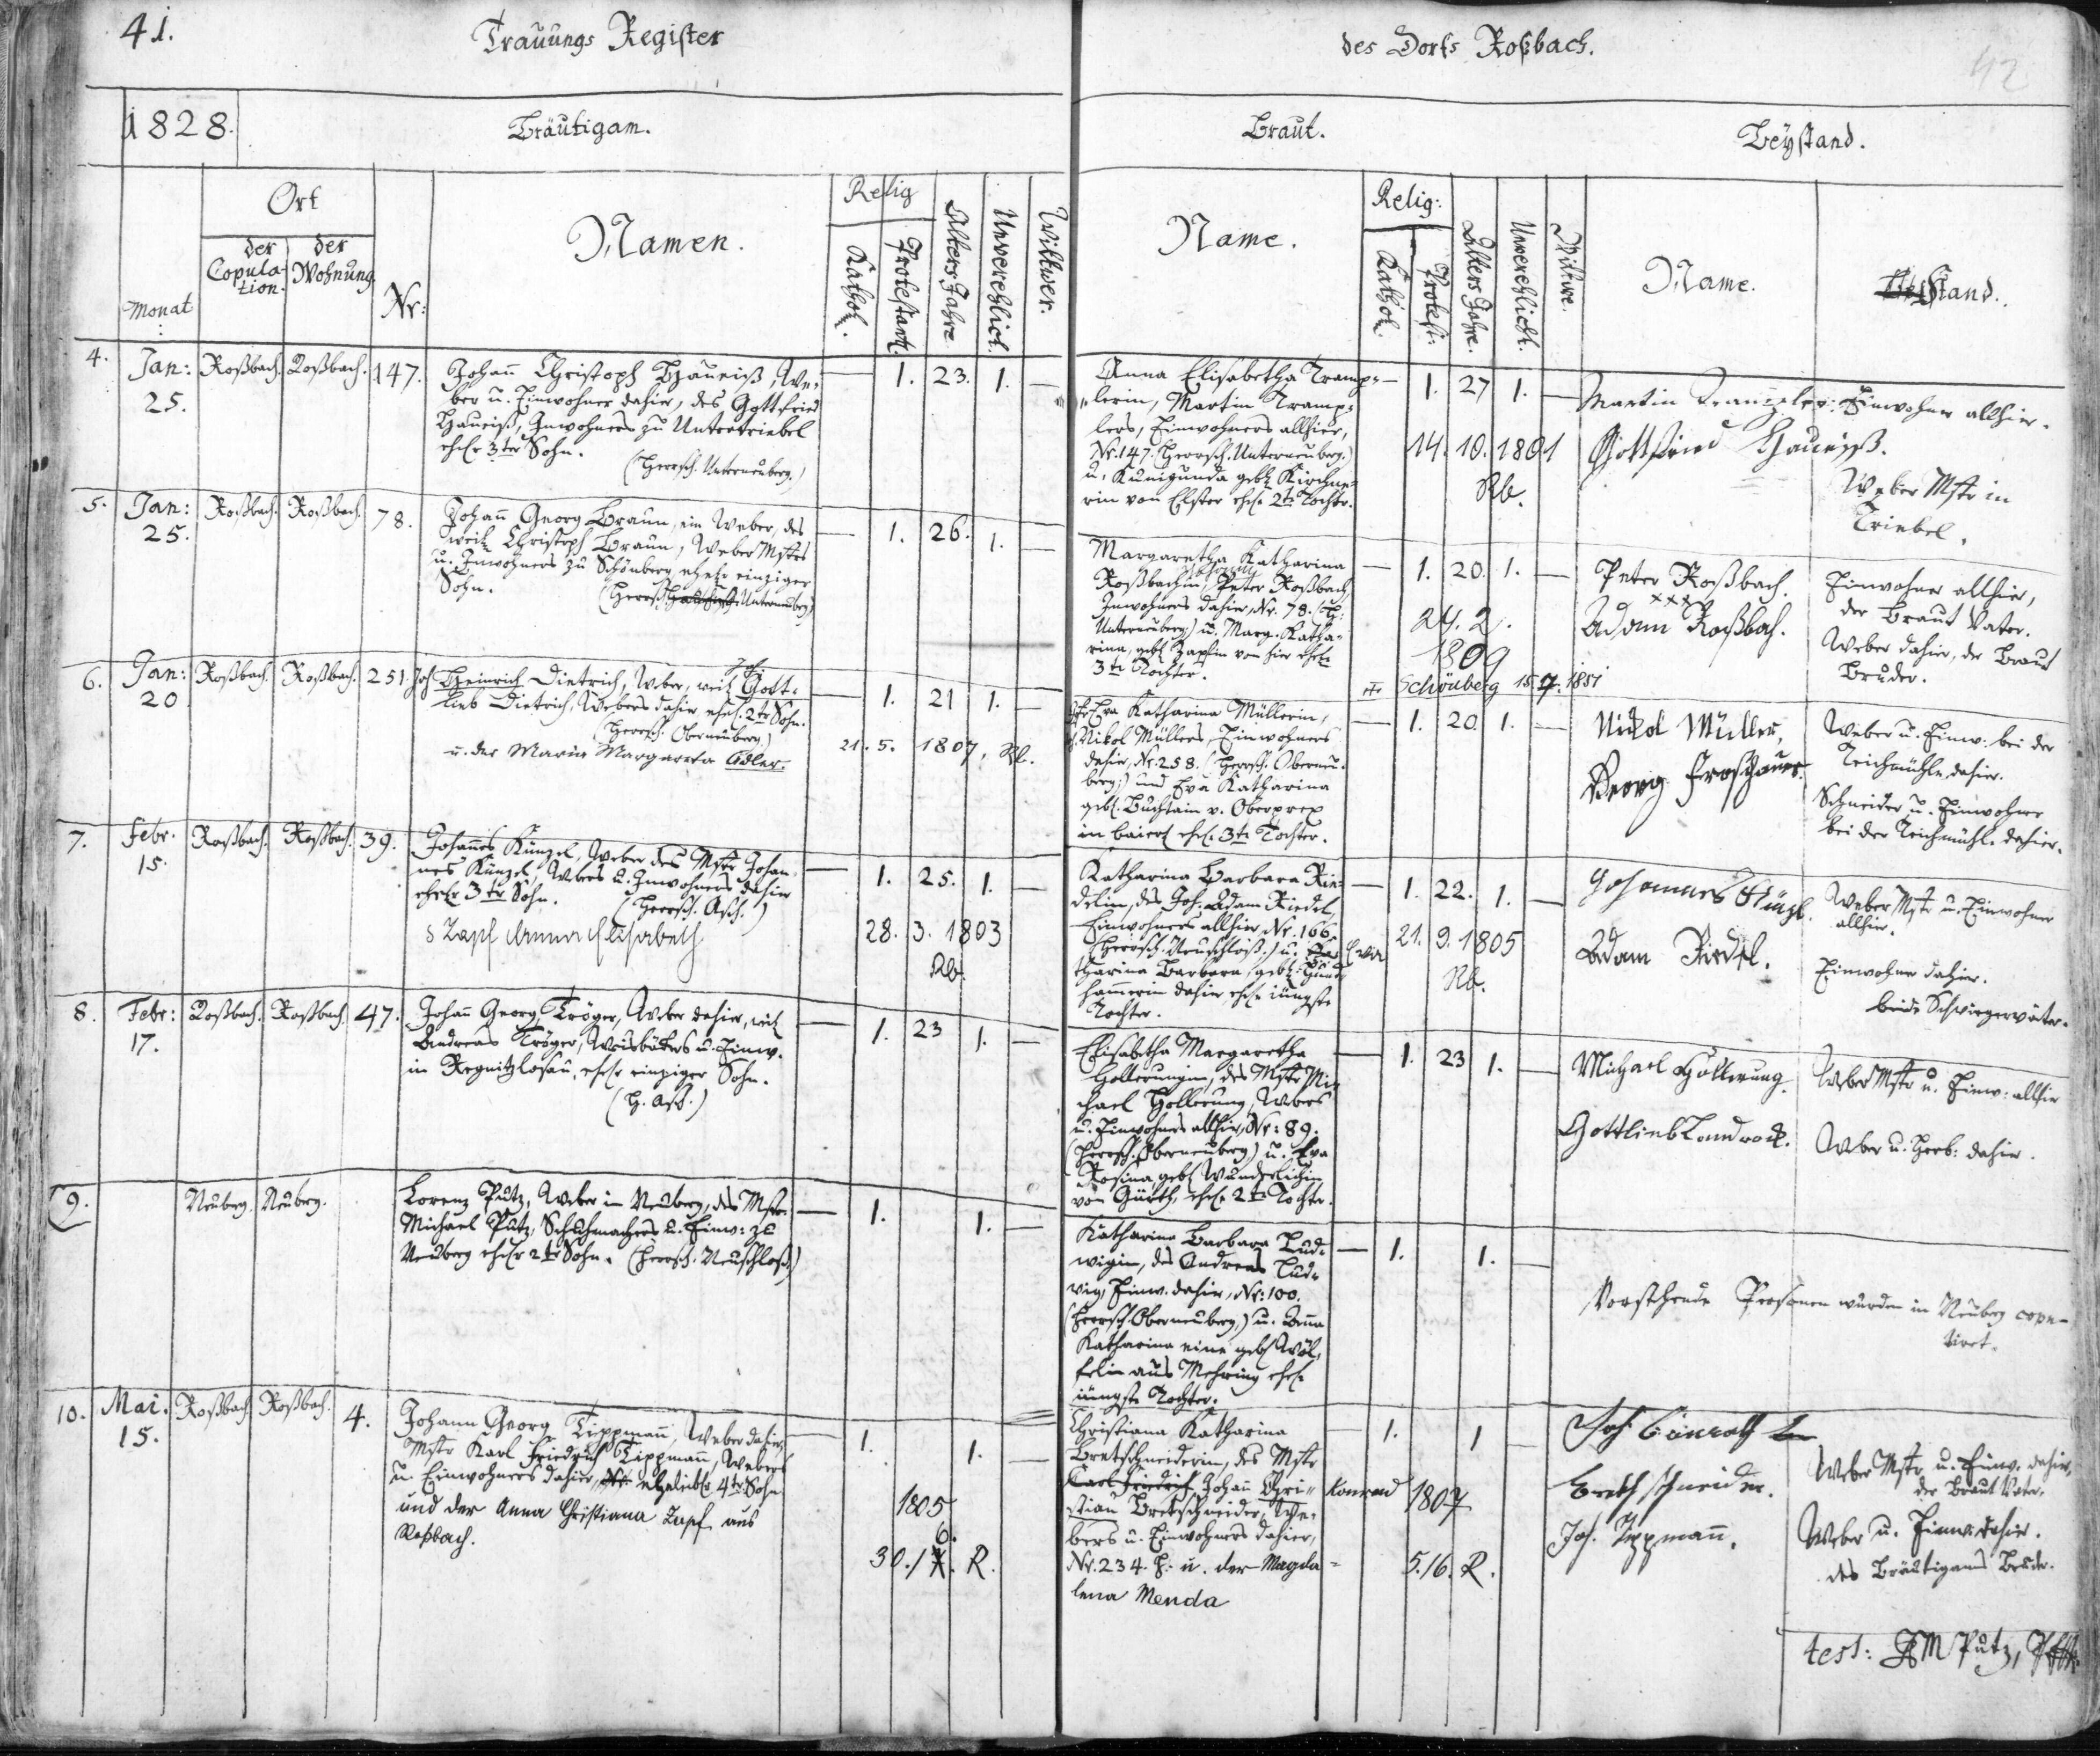 41.
Trauungs Register
des Dorfs Roßbach.
42
1828.
Bräutigam.
Braut.
Beystand.
Ort
der Copula-
tion.
der
Wohnung.
Monat
Nr:
Namen.
Relig
Kathol.
Protestant.
Alters Jahre
Unverehlich.
Wittwer.
Name.
Relig:
Kathol.
Protest:
Alters Jahre.
Unverehlich.
Wittwe.
Name.
Stand.
4.
Jan:
25.
Roßbach. Roßbach. 147.
Johann Christoph Haueiß, We-
ber u. Einwohner dahier, des Gottfried
Haueiß, Inwohners zu Untertriebel
ehel. 3ter Sohn.
(Herrsch. Unterneuberg.)
— 1. 23. 1. —
Anna Elisabetha Tramp-
lerin, Martin Tramp-
lers, Einwohners allhier,
Nr. 147. (Herrsch. Unterneuberg.)
u. Kunigunda geb. Kirchne-
rin von Elster ehel. 2te Tochter.
— 1. 27 1. —
14. 10. 1801
Rb.
Martin Trampler. Einwohner allhier.
Gottfried Haueiß.
Weber Mstr in
Triebel.
5.
Jan:
25.
Roßbach. Roßbach. 78.
Johann Georg Braun, ein Weber, des
weil. Christoph Braun, Weber Mstrs
u. Inwohners zu Schönberg ehel. einziger
Sohn.
(Herrsch. Unterneuberg)
— 1. 26. 1. —
Margaretha Katharina
Roßbachin, Peter Roßbach
Inwohners dahier, Nr. 78. (H:
Unterneuberg) u. Marg. Katha-
rina, geb. Zapfin von hier ehel.
3te Tochter.
— 1. 20. 1. —
24. 2.
1809
Schönberg 15.7.1851
Peter Roßbach.
xxx
Adam Roßbach.
Einwohner allhier,
der Braut Vater.
Weber dahier, der Braut
Bruder.
6.
Jan:
20
Roßbach. Roßbach. 251.
Joh Heinrich Dietrich, Weber, weil. Joh. Gott-
lieb Dietrich, Webers dahier ehel. 2ter Sohn.
(Herrsch. Oberneuberg)
u. der Maria Margareta Adler.
— 1. 21 1. —
21. 5. 1807, Rb.
Eva Katharina Müllerin,
Nikol Müllers, Einwohners
dahier, Nr. 258. (Herrsch. Oberneu-
berg;) und Eva Katharina
geb. Buchtain v. Oberprex
in Baiern ehel. 3te Tochter.
— 1. 20. 1. —
Nickol Müller,
Georg Froschauer.
Weber u. Einw: bei der
Teichmühle dahier.
Schneider u. Einwohner
bei der Teichmühle dahier.
7.
Febr.
15.
Roßbach. Roßbach. 39.
Johannes Künzel, Weber des Mstr Johan-
nes Künzel, Webers u. Inwohners dahier
ehel. 3ter Sohn. (Herrsch. Asch.)
s Zapf Anna Elisabeth
— 1. 25. 1. —
28. 3. 1803
Rb.
Katharina Barbara Rie-
delin, des Joh. Adam Riedel,
Einwohners allhier Nr. 166,
(Herrsch. Neuschloß.) u. Eva
tharina Barbara geb.
hammerin dahier, ehel. jüngste
Tochter.
— 1. 22. 1. —
21. 9. 1805
Rb.
Johannes Künzel.
Adam Riedel.
Weber Mstr u. Einwohner
allhier.
Einwohner dahier.
beide Schwiegerväter.
8.
Febr:
17.
Roßbach. Roßbach. 47.
Johann Georg Tröger, Weber dahier, weil
Andreas Tröger, Weisbäkers u. Einw.
in Regnitzlosau, ehel. einziger Sohn.
(H. Asch.)
— 1. 23 1. —
Elisabetha Margaretha
Hollerungin, des Mstr Mi-
chael Hollerung, Webers
u. Einwohners allhier, Nr: 89.
(Herrsch. Oberneuberg) u. Eva
Rosina, geb. Wunderlichin
von Gürth, ehel. 2te Tochter.
— 1. 23 1. —
Michael Hollerung
Gottlieb Landrock.
Weber Mstr u. Einw: allhier
Weber u. Herb: dahier.
9.
Neuberg. Neuberg.
Lorenz Putz, Weber in Neuberg, des Mstr.
Michael Putz, Schuhmachers u. Einw: zu
Neuberg ehel. 2ter Sohn. (Herrsch. Neuschloß.)
— 1. 1. —
Katharina Barbara Lud-
wigin, des Andreas Lud-
wig, Einw. dahier, Nr: 100.
(Herrsch. Oberneuberg,) u. Anna
Katharina eine geb. Wöl-
felin aus Mehring ehel.
jüngste Tochter.
— 1. 1. —
Vorstehende Personen wurden in Neuberg copu-
liret.
10.
Mai.
15.
Roßbach Roßbach. 4.
Johann Georg Tippmann, Weber dahier,
Mstr Karl Friedrich Tippmann, Webers
u. Einwohners dahier, eheleibl. 4ter Sohn
und der Anna Christiana Zapf aus
Roßbach.
1. 1. —
1805
6.
30./X. R.
Christiana Katharina
Bretschneiderin, des Mstr
Carl Friedrich Johann Chri- Konrad
stian Bretschneider, We-
bers u. Einwohners dahier,
Nr. 234. H. u. der Magda-
lena Menda
1. 1 —
1807
5./6. R.
Joh Conrath
Brethschneider.
Joh. Tippmann.
Weber Mstr u. Einw. dahier,
der Braut Vater.
Weber u. Einw. dahier.
des Bräutigams Bruder.
test: Putz,